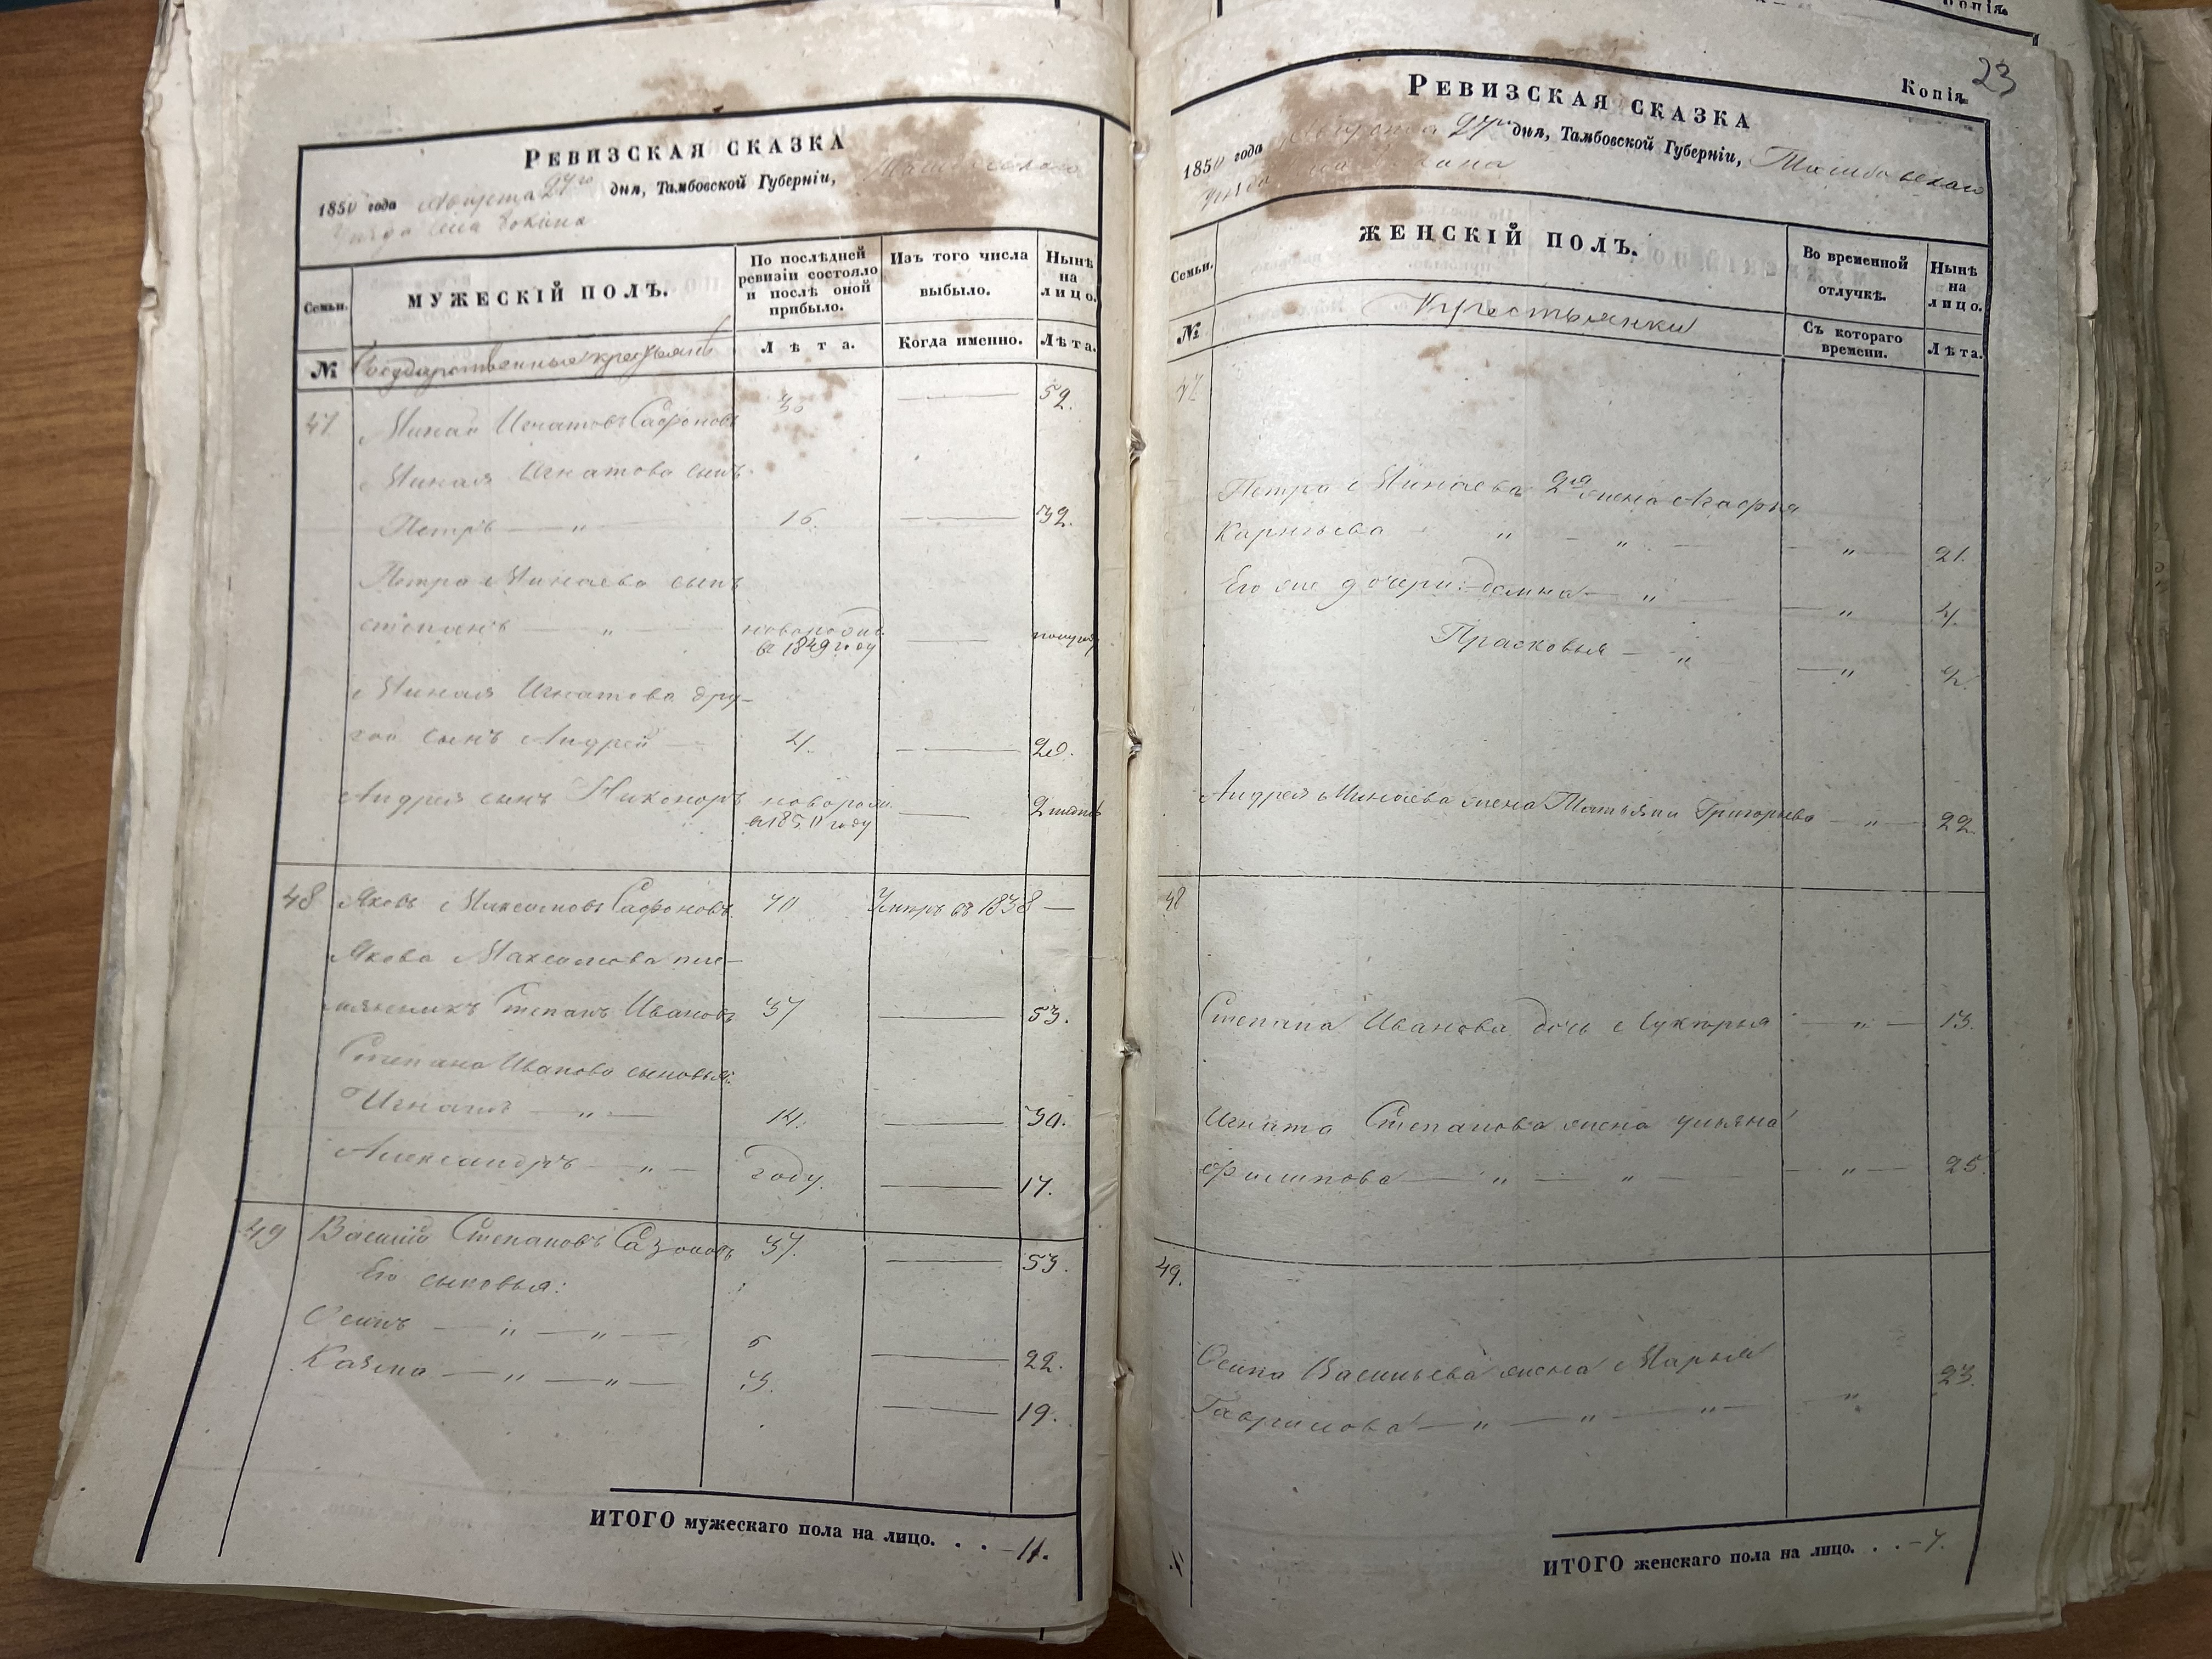 Копія.
РЕВИЗСКАЯ СКАЗКА
1850 года Августа 27го дня, Тамбовской Губерніи, Тамбовскаго
Уѣзда села
Семьи.
МУЖЕСКІЙ ПОЛЪ.
По послѣдней ревизіи состояло и послѣ оной прибыло.
Изъ того числа выбыло.
Нынѣ на лицо.
№
Государственные крестьяне
Лѣта.
Когда именно.
Лѣта.
47 Минай Игнатовъ Сафоновъ 36 — 52.
Миная Игнатова сынъ
Петръ — „ — 16. — 32.
Петра Минаева сынъ
Степанъ — „ — новорожд. — полугоду
въ 1849 году
Миная Игнатова дру-
гой сынъ Андрей — 4. — 20.
Андрея сынъ Никоноръ новорож. —
въ 1850 году
48 Яковъ Максимовъ Сафоновъ 70 Умеръ въ 1838 —
Якова Максимова пле-
мянникъ Степанъ Ивановъ 37 — 53.
Степана Иванова сыновья:
Игнатъ — „ — 14. — 30.
Александръ — „ — году. — 17.
49 Василій Степановъ Сазоновъ 37. — 53.
Его сыновья:
Осипъ — „ — „ — 6 — 22.
Казма — „ — „ — 3. — 19.
ИТОГО мужескаго пола на лицо. . . – 11.
23
Копія.
РЕВИЗСКАЯ СКАЗКА
1850 года Августа 27го дня, Тамбовской Губерніи, Тамбовскаго
Уѣзда села
Семьи.
ЖЕНСКІЙ ПОЛЪ.
Во временной отлучкѣ.
Нынѣ на лицо.
№
Крестьянки
Съ котораго времени.
Лѣта.
47
Петра Минаева 2я жена Агафья
Карнѣева „ — „ — — „ — 21.
Его же дочери: Домна — „ — — „ — 4
Прасковья — „ — „ 2.
Андрея Минаева жена Татьяна Григорьева — „ — 22.
48
Степана Иванова дочь Лукерья — „ — 13.
Игната Степанова жена Ульяна
Филипова — „ — „ — — „ — 25.
49.
Осипа Васильева жена Марья 23.
Гаврилова — „ — „ — „ — „
ИТОГО женскаго пола на лицо. . . – 7.